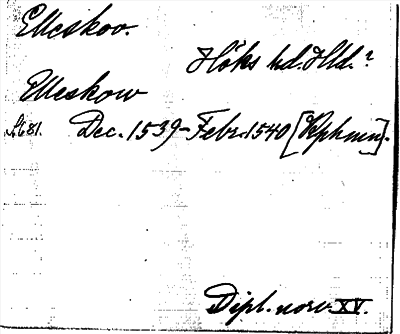 Elleskov.
Höks hd. Hld.?
Elleskow
s. 681. Dec. 1539-Febr. 1540 [Kphmn].
Dipl. norv. XV.